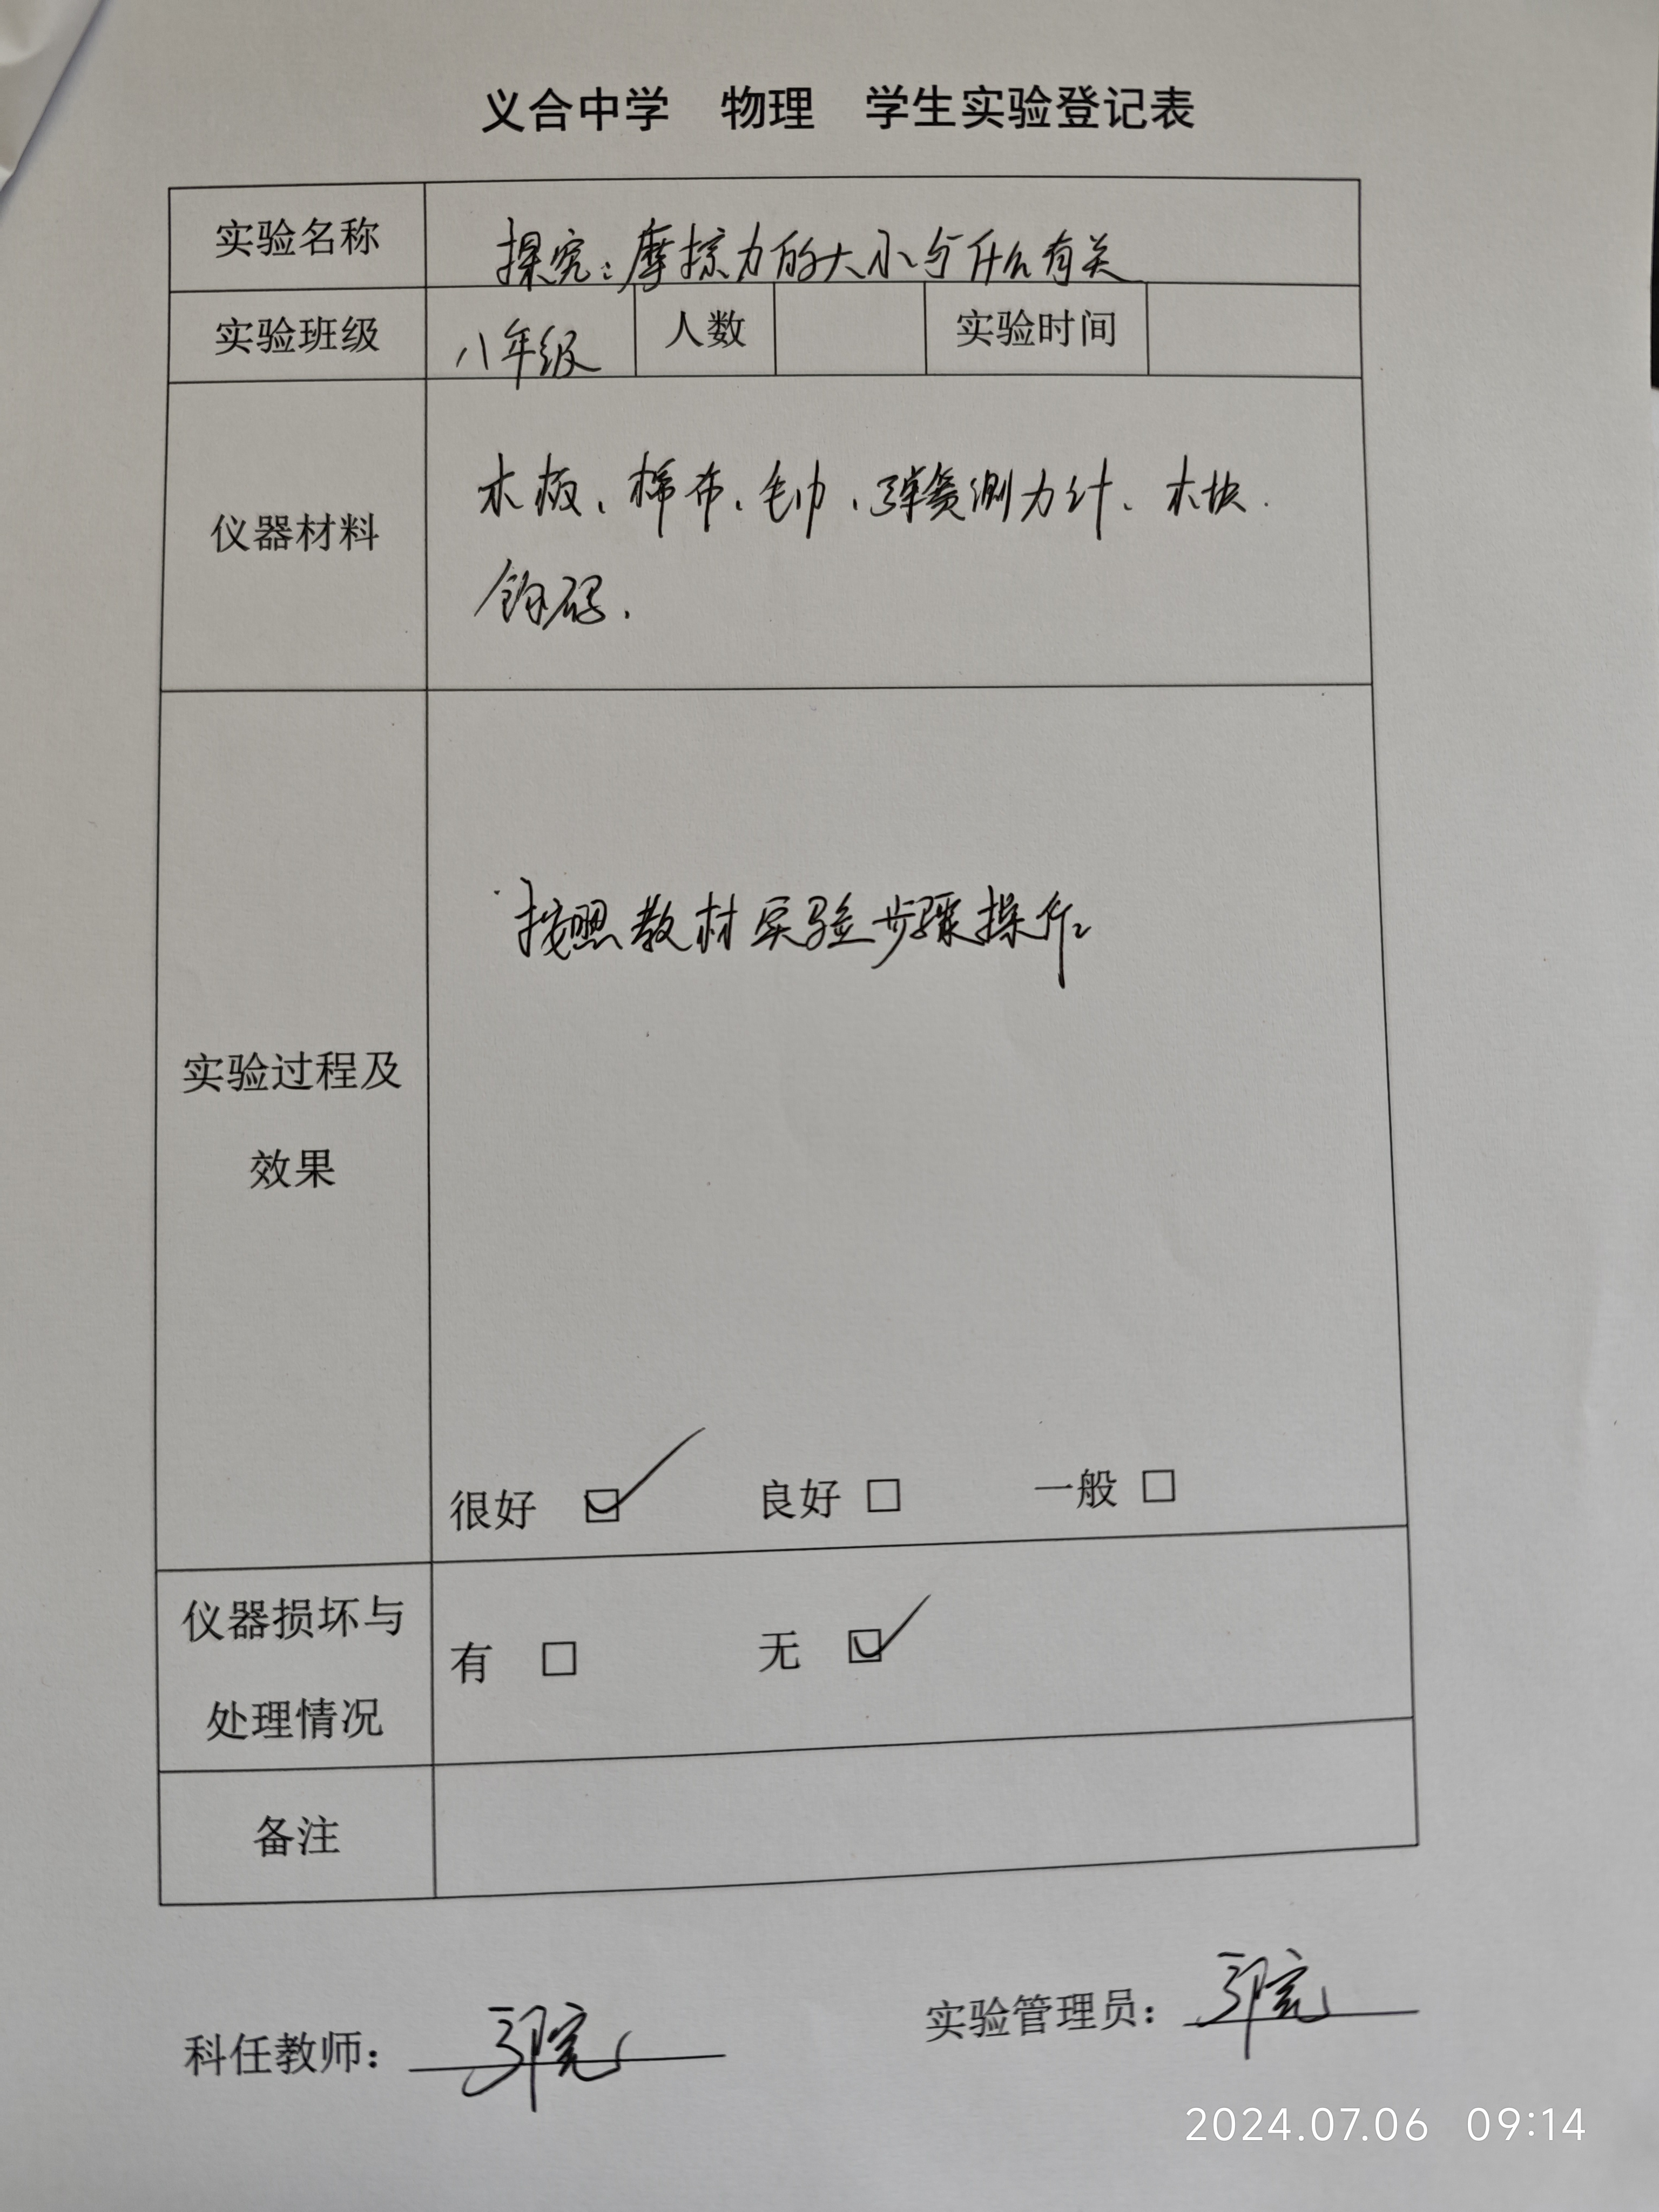 义合中学 物理 学生实验登记表
实验名称 探究：摩擦力的大小与什么有关
实验班级 八年级 人数 实验时间
仪器材料 木板、棉布、毛巾、弹簧测力计、木块.
钩码.
按照教材实验步骤操作
实验过程及
效果
很好 ☑ 良好 □ 一般 □
仪器损坏与
有 □ 无 ☑
处理情况
备注
科任教师：
实验管理员：
2024.07.06 09:14